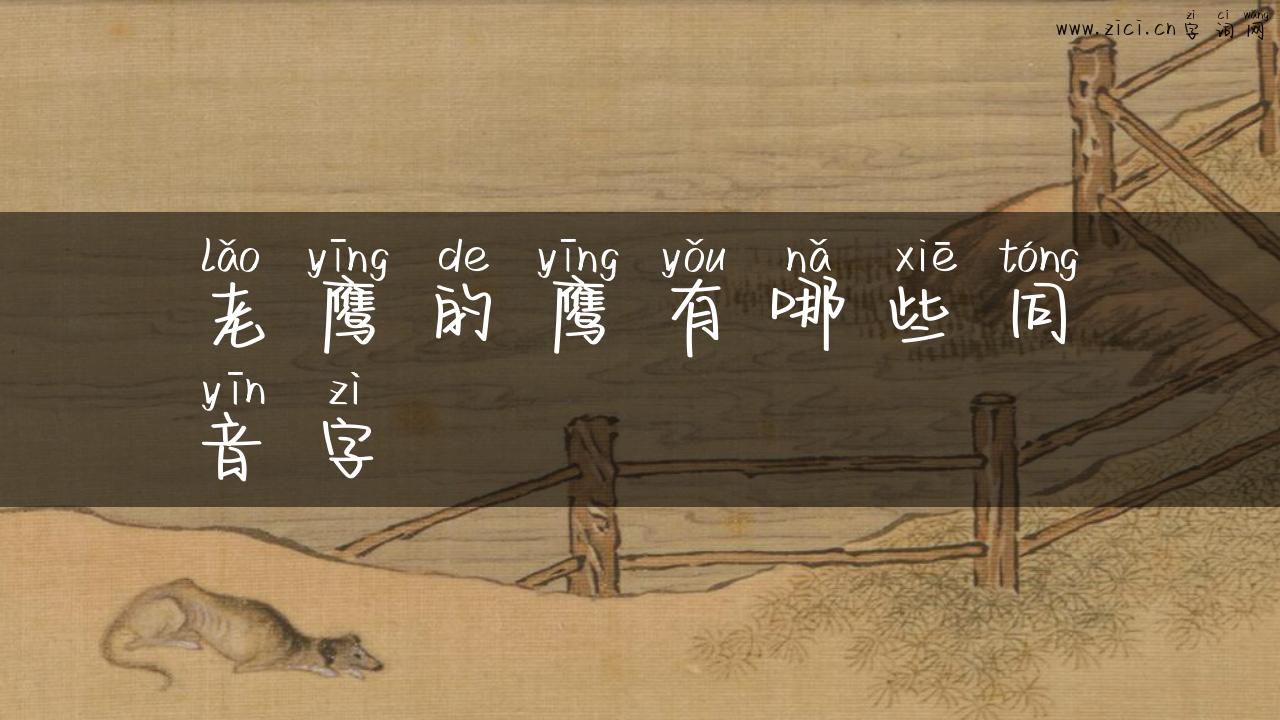 zì cí wǎng
www.zici.cn 字词网
lǎo yīng de yīng yǒu nǎ xiē tóng
老鹰的鹰有哪些同
yīn zì
音字